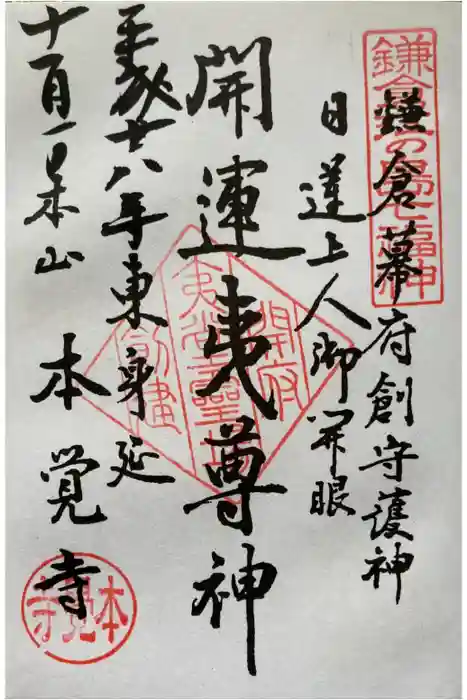 鎌倉幕府創守護神
日蓮上人御開眼
開運夷尊神
平成二十八年東身延
十一月一日本山本覚寺
開府
夷堂霊
創建
本覚寺